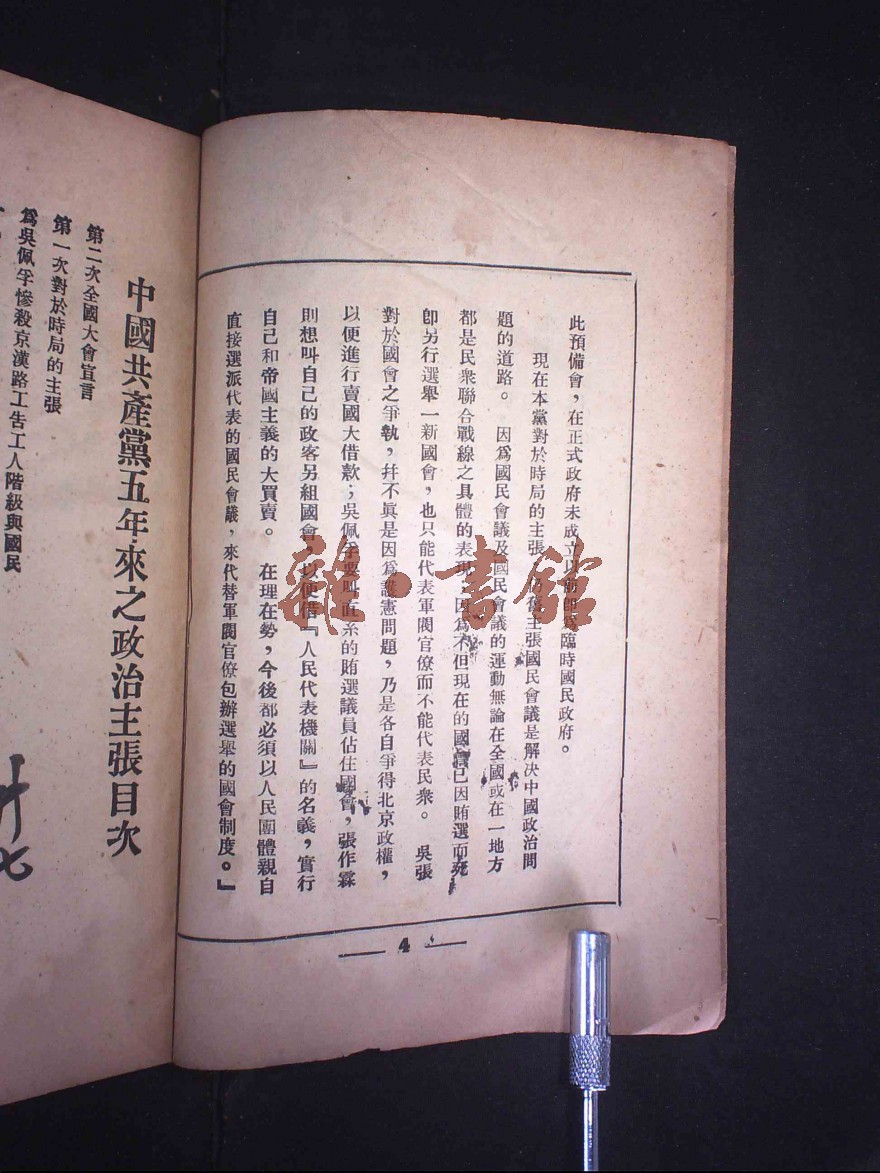 此預備會，在正式政府未成立以前即爲臨時國民政府。
現在本黨對於時局的主張，仍舊主張國民會議是解決中國政治問
題的道路。 因爲國民會議及國民會議的運動無論在全國或在一地方
都是民衆聯合戰線之具體的表現，因爲不但現在的國會已因賄選而死
卽另行選舉一新國會，也只能代表軍閥官僚而不能代表民衆。 吳張
對於國會之爭執，幷不眞是因爲護憲問題，乃是各自爭得北京政權，
以便進行賣國大借款；吳佩孚要叫直系的賄選議員佔住國會，張作霖
則想叫自己的政客另組國會，以便借『人民代表機關』的名義，實行
自己和帝國主義的大買賣。 在理在勢，今後都必須以人民團體親自
直接選派代表的國民會議，來代替軍閥官僚包辦選舉的國會制度。』
4
中國共產黨五年來之政治主張目次
第二次全國大會宣言
第一次對於時局的主張
爲吳佩孚慘殺京漢路工告工人階級與國民
雜·書館